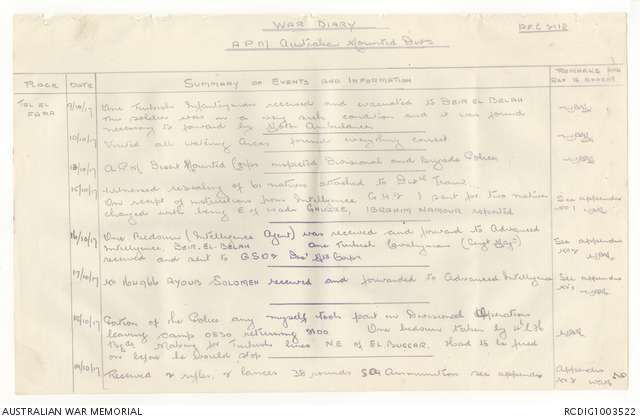 WAR DIARY
A.P.M. Australian Mounted Divs
PLACE DATE SUMMARY OF EVENTS AND INFORMATION REMARKS AND
TEL EL FARA 9/10/17 One Turkish Infantryman received and evacuated to DEIR EL BELAH
This soldier was in a very sick condition and it was found
necessary to forward by Ambulance
10/10/17 Visited all watering Areas found everything correct
A.P.M. Desert Mounted Corps inspected Divisional and Brigade Police
15/10/17 Witnessed of 61 natives attached to Train
On receipt of instructions from Intelligence G.H.Q. I sent for two natives
charged with being IBRAHIM reported
See appendix
No 1
16/10/17 One Bedouin (Intelligence Agent) was received and forward to Advanced
Intelligence, DEIR EL BELAH one Turkish Cavalryman
received and sent to G.S.O. Corps
See appendix
17/10/17 AYOUB SOLOMEN received and forwarded to Advanced Intelligence
See appendix
Portion of the Police and myself took part in Divisional Operations
leaving camp 0530 returning 2100. One bedouin taken by 4th L.H.
Making for Turkish lines NE of EL BUGGAR. Had to be fired
on before he would stop
19/10/17 Received rifles, lances 38 rounds SAA Ammunition see appendix
Appendix
AUSTRALIAN WAR MEMORIAL
RCDIG1003522